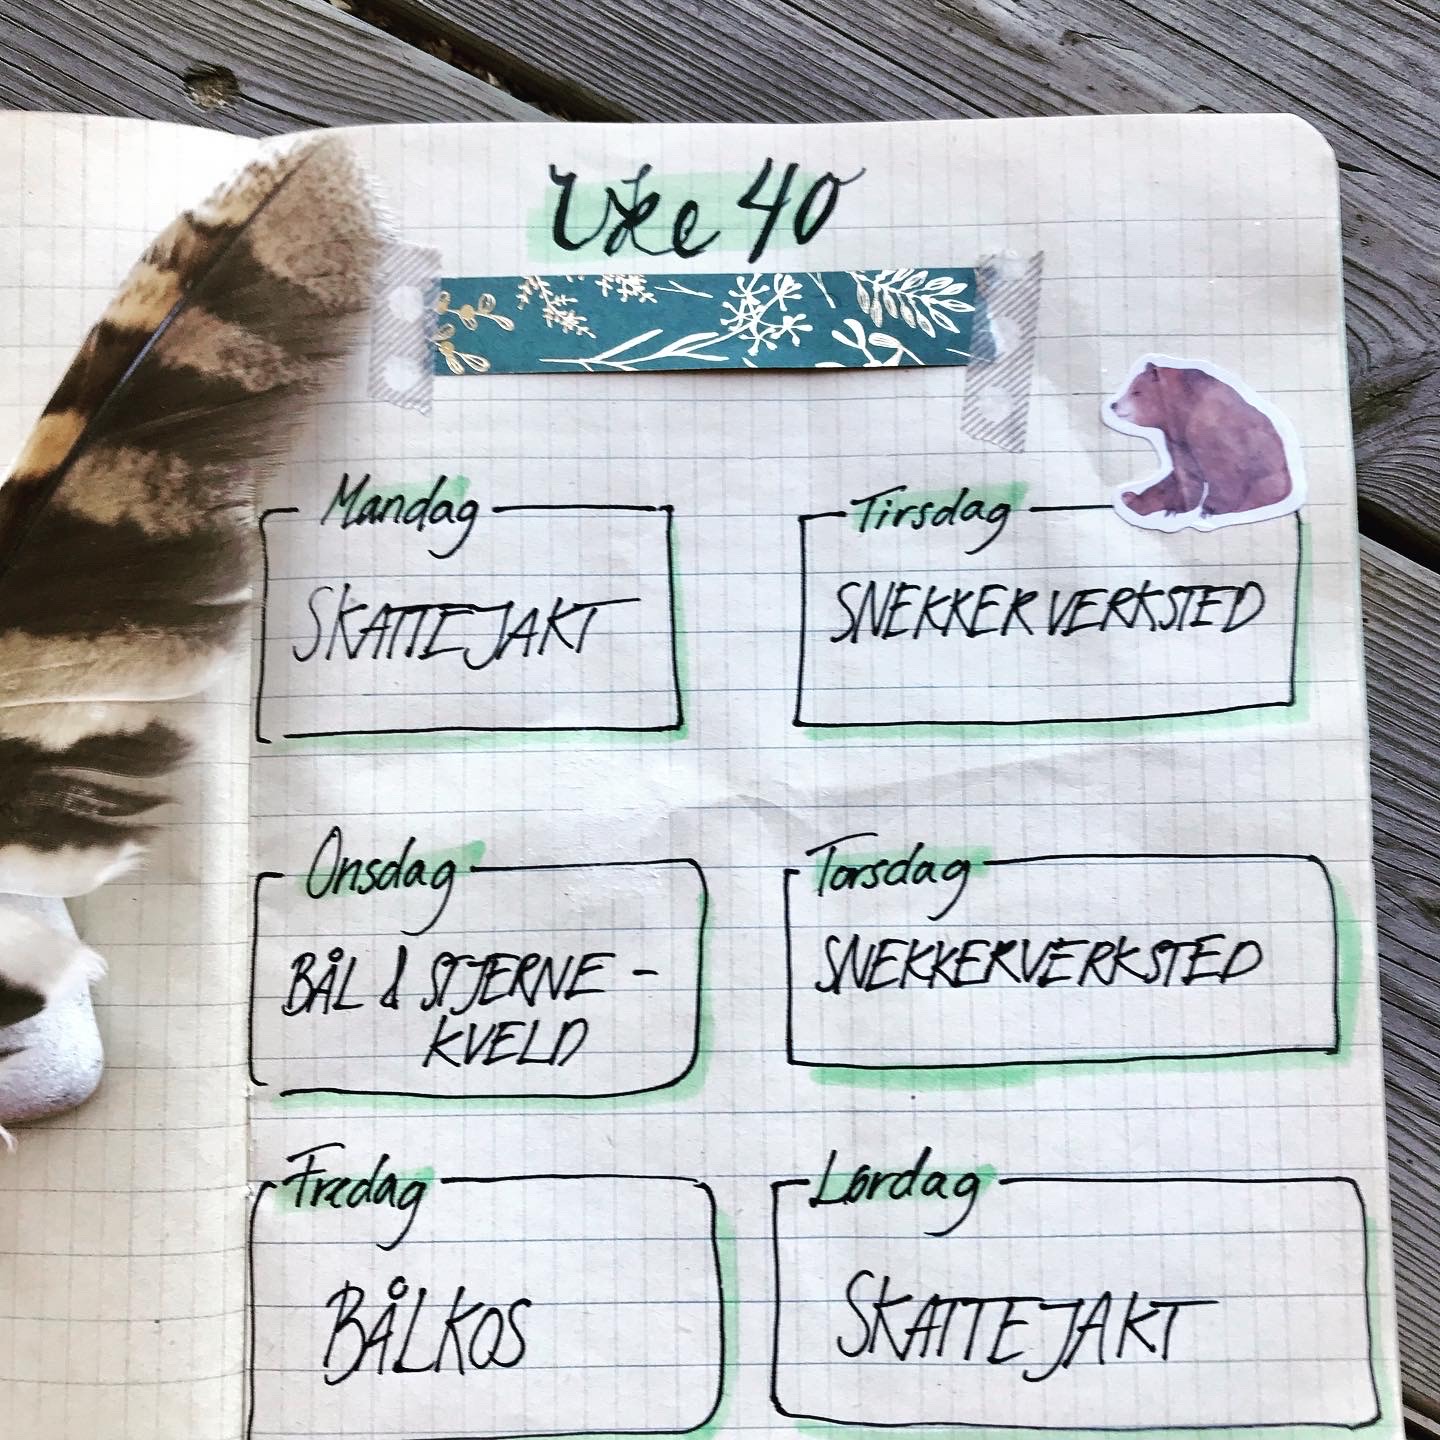 Uke 40
Mandag
SKATTEJAKT
Tirsdag
SNEKKERVERKSTED
Onsdag
BÅL & STJERNE-
KVELD
Torsdag
SNEKKERVERKSTED
Fredag
BÅLKOS
Lørdag
SKATTEJAKT